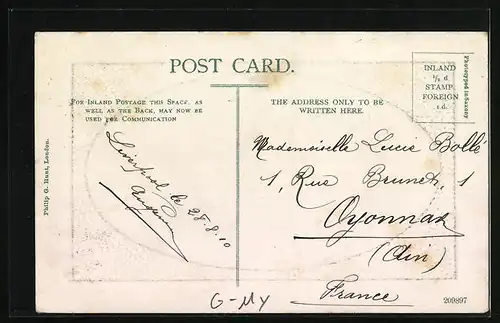 POST CARD.
FOR INLAND POSTAGE THIS SPACE, AS
WELL AS THE BACK, MAY NOW BE
USED FOR COMMUNICATION
THE ADDRESS ONLY TO BE
WRITTEN HERE.
INLAND
½ d
STAMP.
FOREIGN
1.d.
Photographed in Saxony
Philip G. Hunt, London.
Liverpool le
28.8.10
Mademoiselle Lucie Bolle
1, Rue Brunet, 1
Oyonnax
(Ain)
France
G-MY
209897